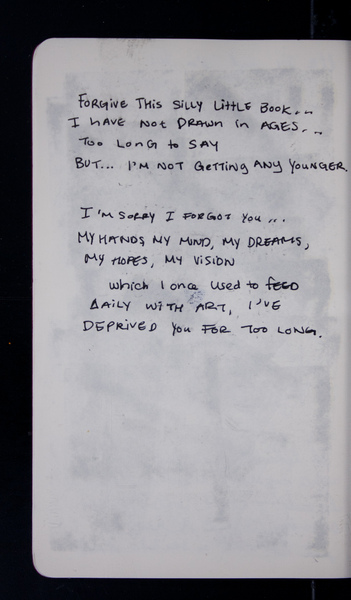 FORGIVE THIS SILLY LITTLE BOOK...
I HAVE NOT DRAWN in AGES...
TOO LONG to SAY
BUT... I'M NOT GETTING ANY YOUNGER.
I'M SORRY I FORGOT YOU...
MY HANDS MY MIND, MY DREAMS,
MY HOPES, MY VISION
which I once used to FEED
DAILY WITH ART, I'VE
DEPRIVED YOU FOR TOO LONG.